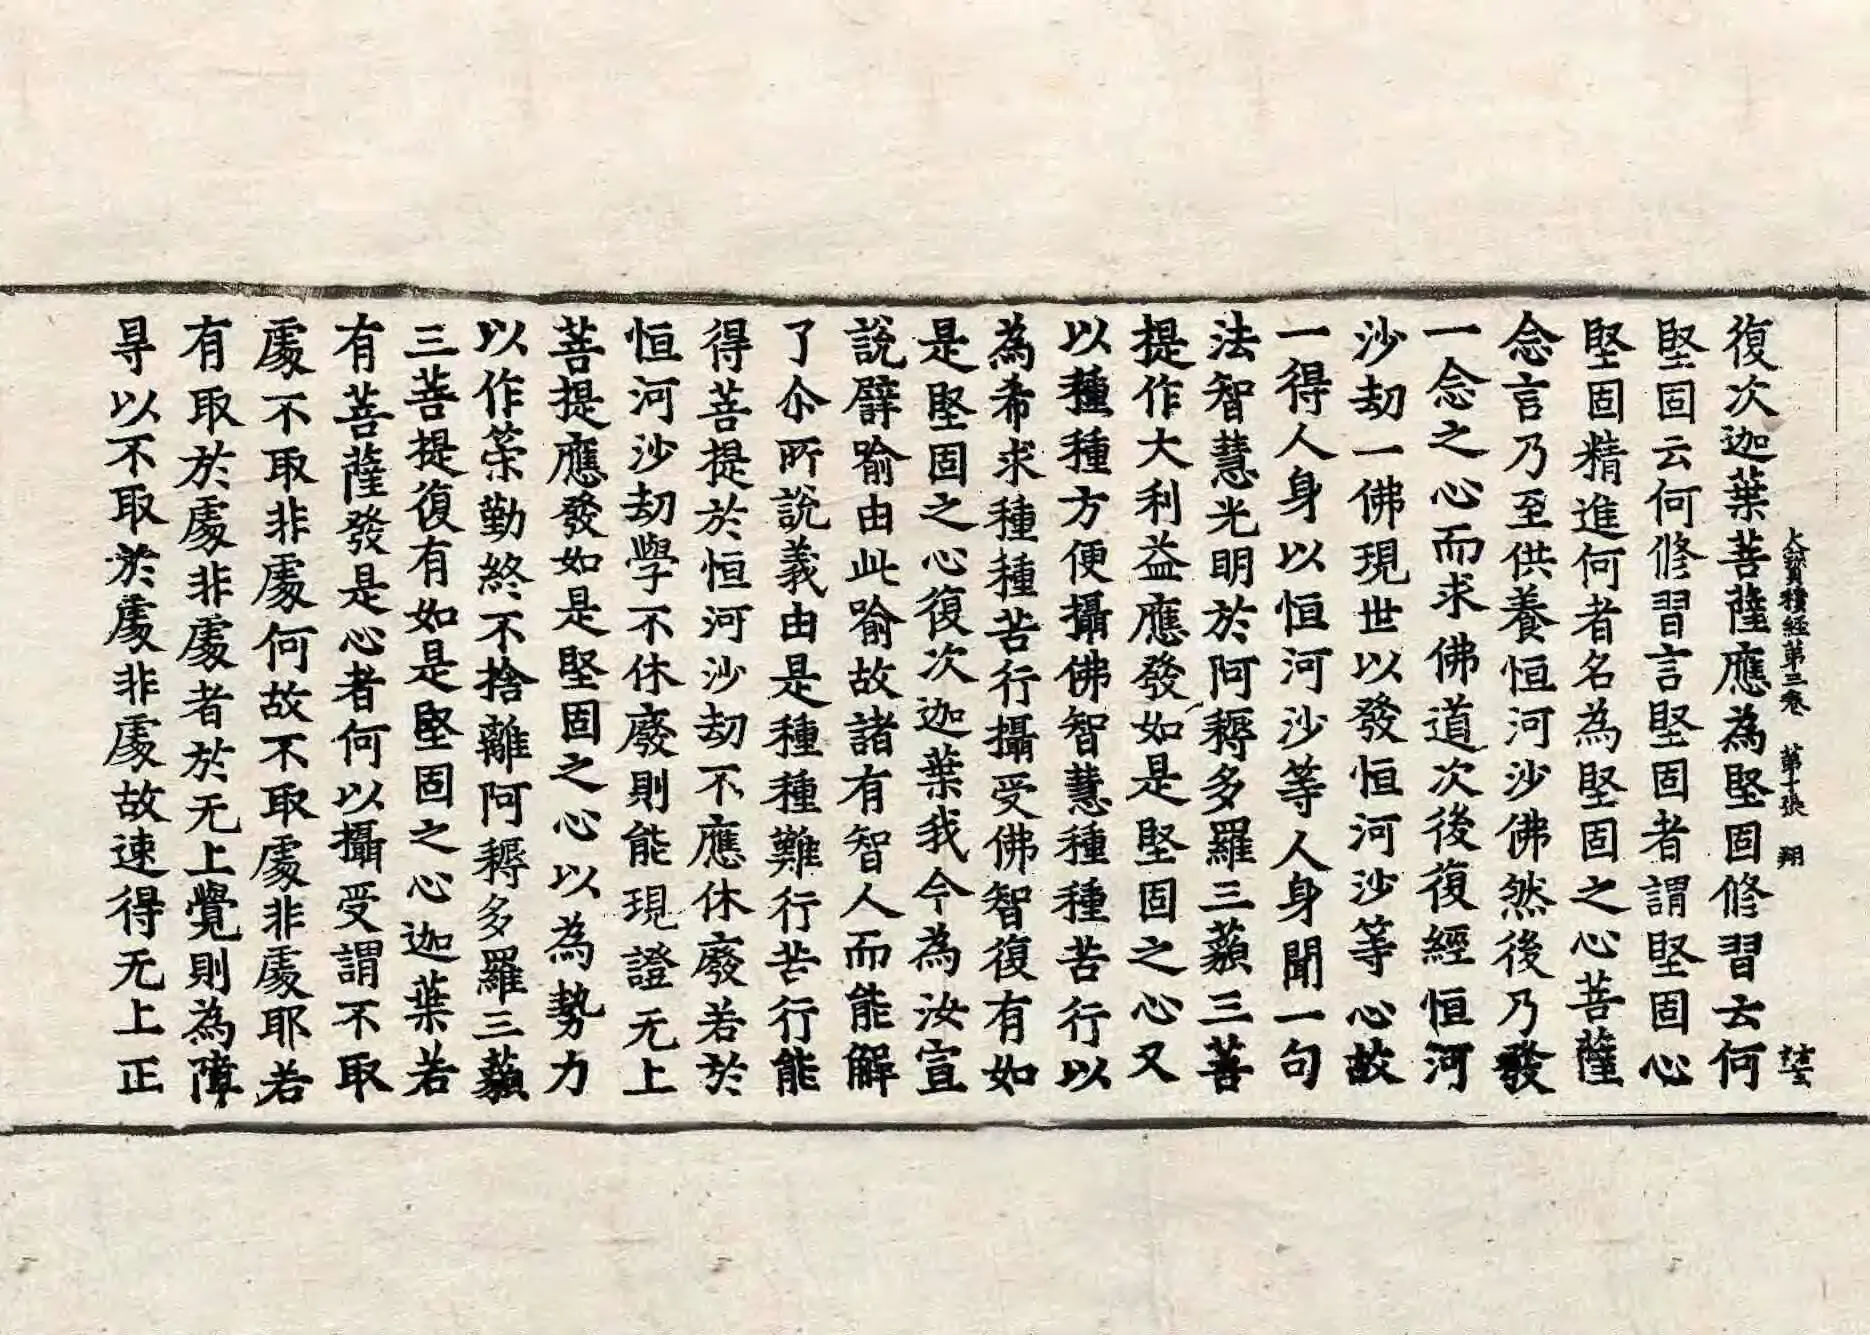 大寶積經第三卷 第十張 翔
復次迦葉菩薩應為堅固修習云何
堅固云何修習言堅固者謂堅固心
堅固精進何者名為堅固之心菩薩
念言乃至供養恒河沙佛然後乃發
一念之心而求佛道次後復經恒河
沙劫一佛現世以發恒河沙等心故
一得人身以恒河沙等人身聞一句
法智慧光明於阿耨多羅三藐三菩
提作大利益應發如是堅固之心又
以種種方便攝佛智慧種種苦行以
為希求種種苦行攝受佛智復有如
是堅固之心復次迦葉我今為汝宣
說譬喻由此喻故諸有智人而能解
了尒所說義由是種種難行苦行能
得菩提於恒河沙劫不應休廢若於
恒河沙劫學不休廢則能現證无上
菩提應發如是堅固之心以為勢力
以作策勤終不捨離阿耨多羅三藐
三菩提復有如是堅固之心迦葉若
有菩薩發是心者何以攝受謂不取
處不取非處何故不取處非處耶若
有取於處非處者於无上覺則為障
㝵以不取於處非處故速得无上正